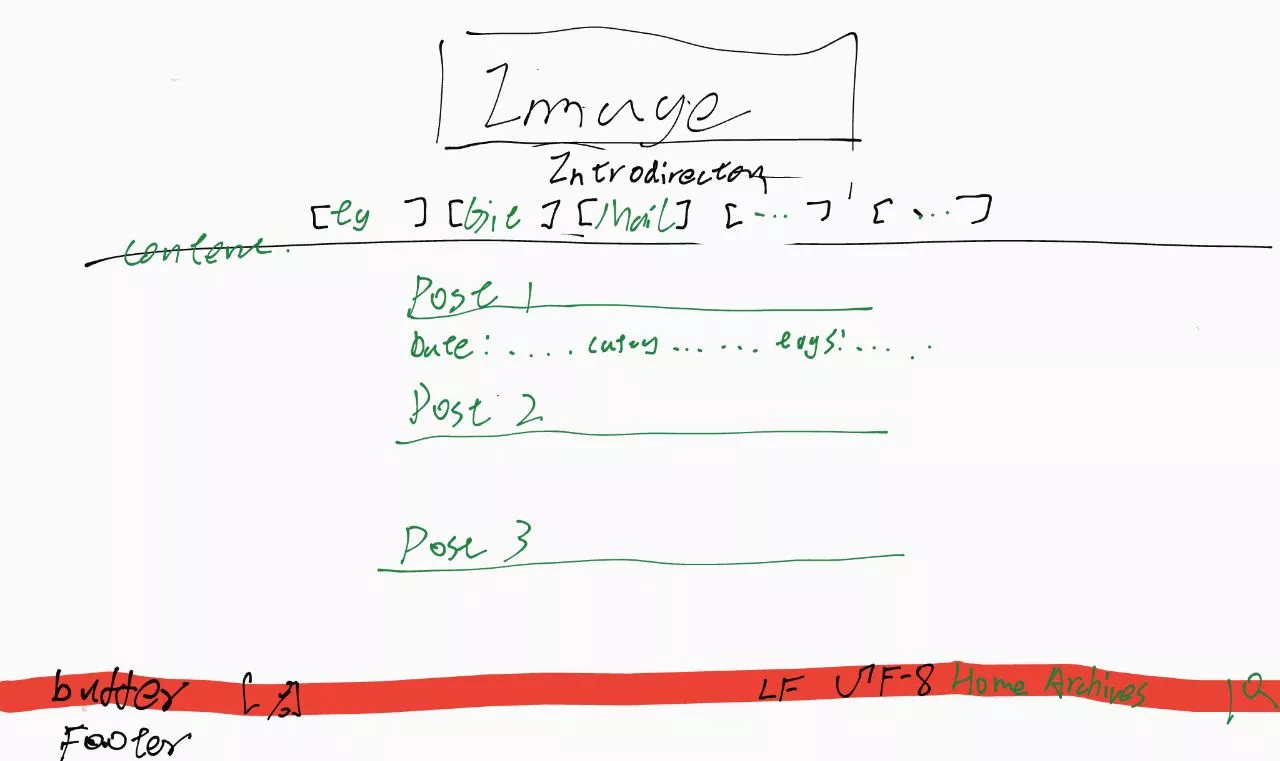 Image
Introdirectory
[tg ] [Git ] [Mail] [... ] [ ...]
Content.
Post 1
Date: .... ...... tags: .....
Post 2
Post 3
buffer [%] LF UTF-8 Home Archives
Footer